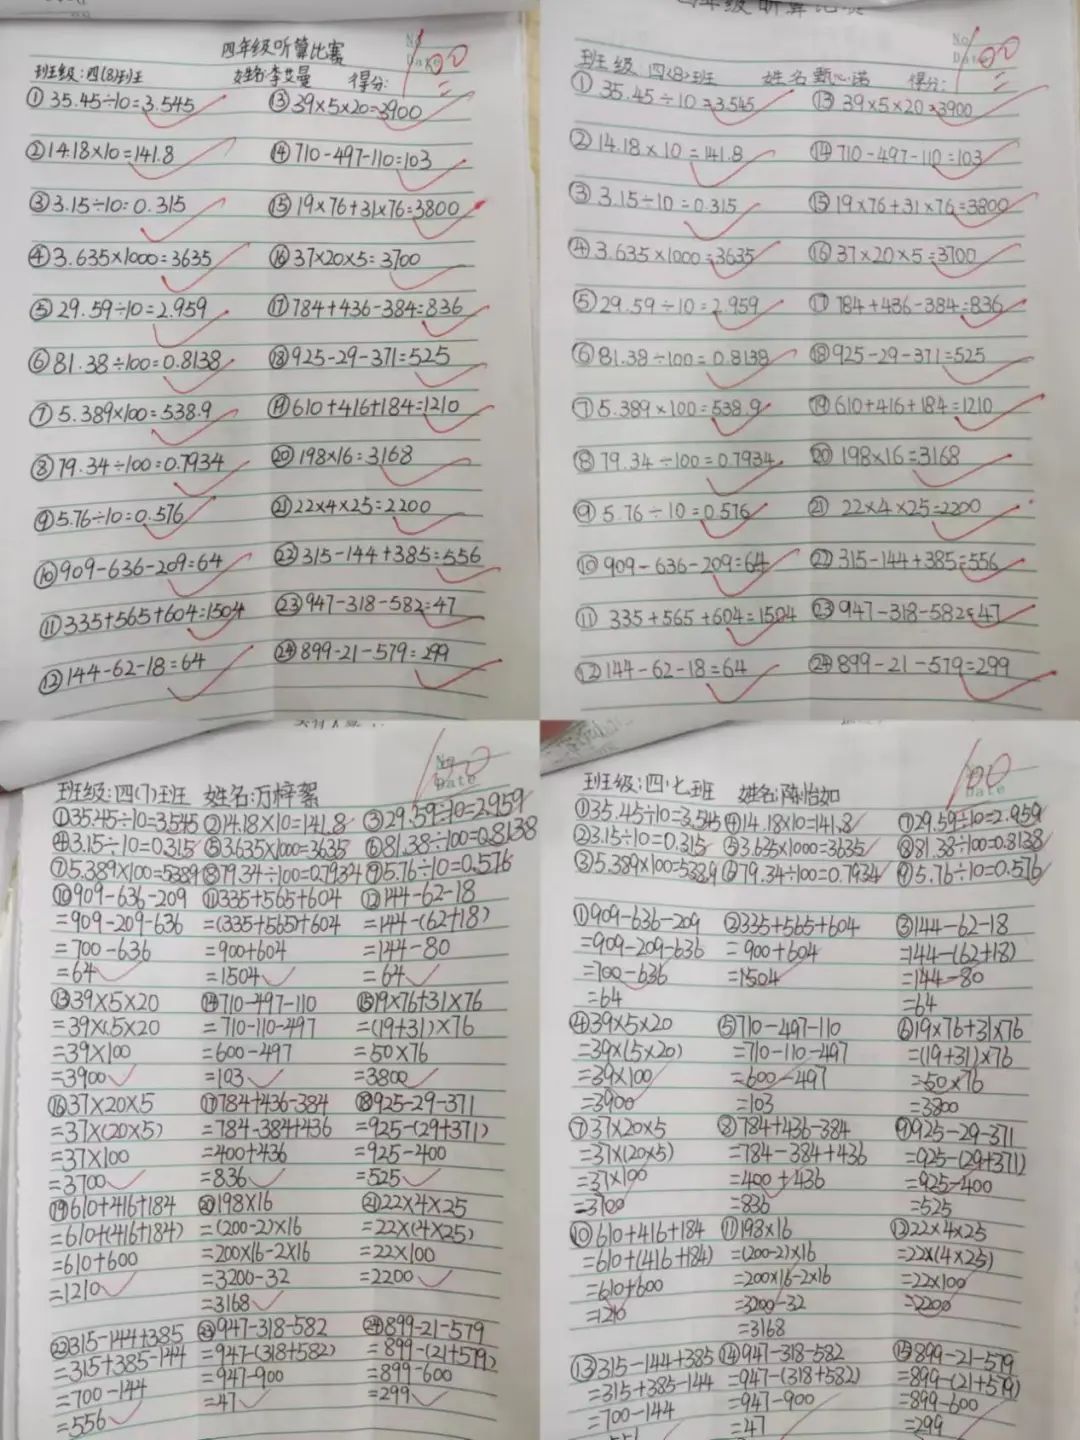 四年级听算比赛
No.
Date
100
班级:四(8)班 姓名:李艾曼 得分:
①35.45÷10=3.545 ⑬39×5×20=3900
②14.18×10=141.8 ⑭710-497-110=103
③3.15÷10=0.315 ⑮19×76+31×76=3800
④3.635×1000=3635 ⑯37×20×5=3700
⑤29.59÷10=2.959 ⑰784+436-384=836
⑥81.38÷100=0.8138 ⑱925-29-371=525
⑦5.389×100=538.9 ⑲610+416+184=1210
⑧79.34÷100=0.7934 ⑳198×16=3168
⑨5.76÷10=0.576 ㉑22×4×25=2200
⑩909-636-209=64 ㉒315-144+385=556
⑪335+565+604=1504 ㉓947-318-582=47
⑫144-62-18=64 ㉔899-21-579=299
四年级听算比赛
No.
Date
100
班级:四(8)班 姓名 甄心诺 得分:
①35.45÷10=3.545 ⑬39×5×20=3900
②14.18×10=141.8 ⑭710-497-110=103
③3.15÷10=0.315 ⑮19×76+31×76=3800
④3.635×1000=3635 ⑯37×20×5=3700
⑤29.59÷10=2.959 ⑰784+436-384=836
⑥81.38÷100=0.8138 ⑱925-29-371=525
⑦5.389×100=538.9 ⑲610+416+184=1210
⑧79.34÷100=0.7934 ⑳198×16=3168
⑨5.76÷10=0.576 ㉑22×4×25=2200
⑩909-636-209=64 ㉒315-144+385=556
⑪335+565+604=1504 ㉓947-318-582=47
⑫144-62-18=64 ㉔899-21-579=299
No.
Date
100
班级:四(7)班 姓名:万梓絮
①35.45÷10=3.545 ②14.18×10=141.8 ③29.59÷10=2.959
④3.15÷10=0.315 ⑤3.635×1000=3635 ⑥81.38÷100=0.8138
⑦5.389×100=538.9 ⑧79.34÷100=0.7934 ⑨5.76÷10=0.576
⑩909-636-209 ⑪335+565+604 ⑫144-62-18
=909-209-636 =(335+565)+604 =144-(62+18)
=700-636 =900+604 =144-80
=64 =1504 =64
⑬39×5×20 ⑭710-497-110 ⑮19×76+31×76
=39×(5×20 =710-110-497 =(19+31)×76
=39×100 =600-497 =50×76
=3900 =103 =3800
⑯37×20×5 ⑰784+436-384 ⑱925-29-371
=37×(20×5) =784-384+436 =925-(29+371)
=37×100 =400+436 =925-400
=3700 =836 =525
⑲610+416+184 ⑳198×16 ㉑22×4×25
=610+(416+184) =(200-2)×16 =22×(4×25)
=610+600 =200×16-2×16 =22×100
=1210 =3200-32 =2200
=3168
㉒315-144+385 ㉓947-318-582 ㉔899-21-579
=315+385-144 =947-(318+582) =899-(21+579)
=700-144 =947-900 =899-600
=556 =47 =299
No.
Date
100
班级:四·七班 姓名:陈怡如
①35.45÷10=3.545 ④14.18×10=141.8 ⑦29.59÷10=2.959
②3.15÷10=0.315 ⑤3.635×1000=3635 ⑧81.38÷100=0.8138
③5.389×100=538.9 ⑥79.34÷100=0.7934 ⑨5.76÷10=0.576
①909-636-209 ②335+565+604 ③144-62-18
=909-209-636 =900+604 =144-(62+18)
=700-636 =1504 =144-80
=64 =64
④39×5×20 ⑤710-497-110 ⑥19×76+31×76
=39×(5×20) =710-110-497 =(19+31)×76
=39×100 =600-497 =50×76
=3900 =103 =3800
⑦37×20×5 ⑧784+436-384 ⑨925-29-371
=37×(20×5) =784-384+436 =925-(29+371)
=37×100 =400+436 =925-400
=3700 =836 =525
⑩610+416+184 ⑪198×16 ⑫22×4×25
=610+(416+184) =(200-2)×16 =22×(4×25)
=610+600 =200×16-2×16 =22×100
=1210 =3200-32 =2200
=3168
⑬315-144+385 ⑭947-318-582 ⑮899-21-579
=315+385-144 =947-(318+582) =899-(21+579)
=700-144 =947-900 =899-600
=47 =299